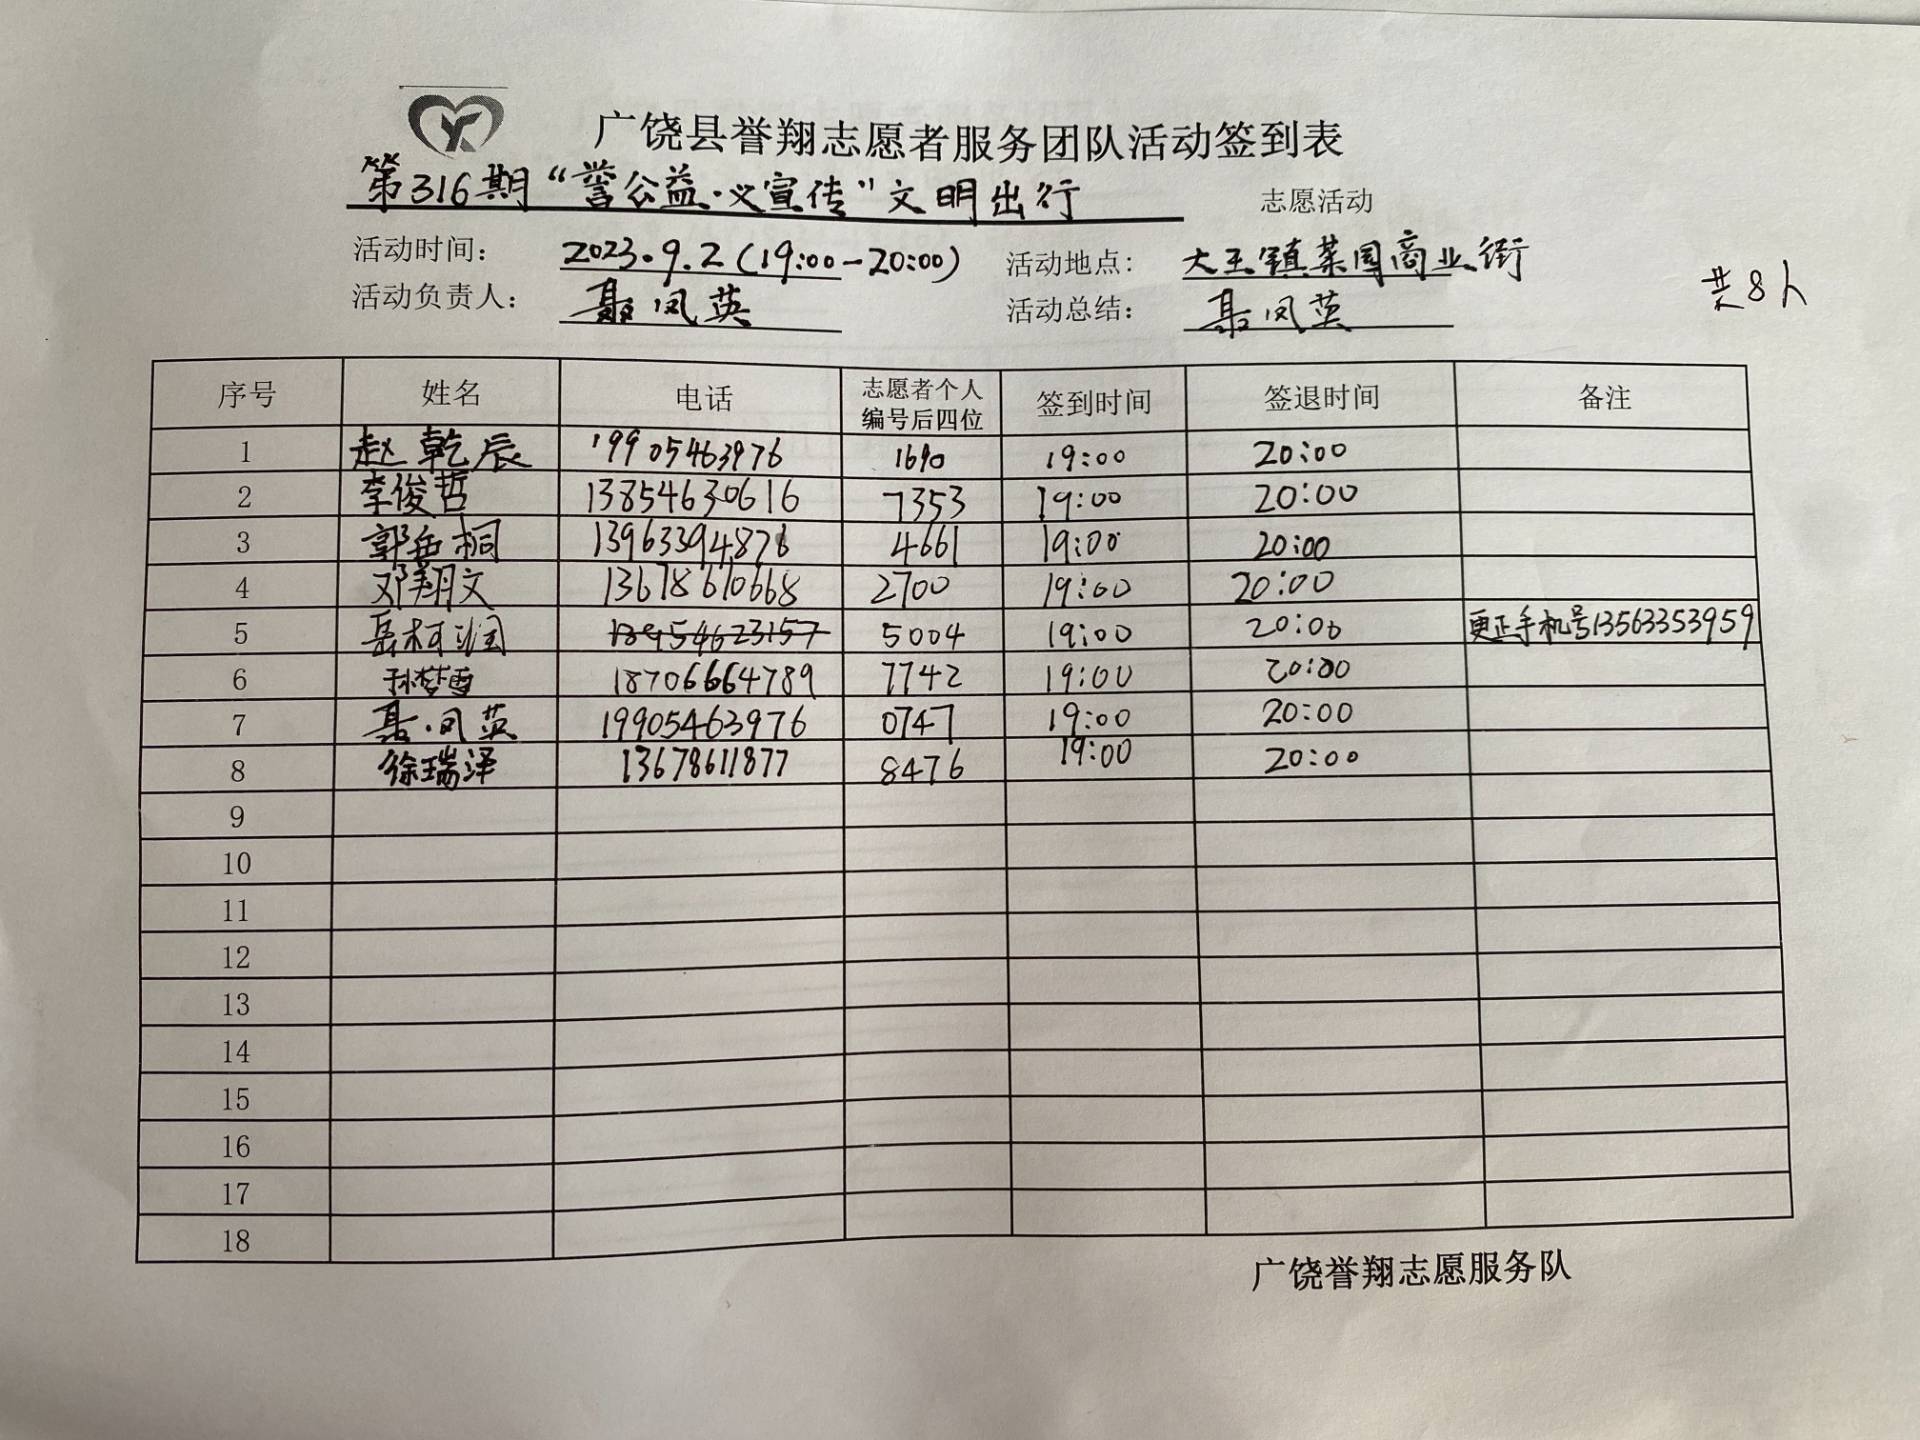 广饶县誉翔志愿者服务团队活动签到表
第316期“誉公益·义宣传”文明出行 志愿活动
活动时间： 2023.9.2(19:00-20:00) 活动地点： 大王镇菜园商业街
活动负责人： 聂凤英 活动总结： 聂凤英
共8人
序号 姓名 电话 志愿者个人编号后四位 签到时间 签退时间 备注
1 赵乾辰 19905463976 1690 19:00 20:00
2 李俊哲 13854630616 7353 19:00 20:00
3 郭岳桐 13963394876 4661 19:00 20:00
4 邓翔文 13678610668 2700 19:00 20:00
5 岳柯润 18954623157 5004 19:00 20:00 更正手机号13563353959
6 孙梦雪 18706664789 7742 19:00 20:00
7 聂凤英 19905463976 0747 19:00 20:00
8 徐瑞泽 13678611877 8476 19:00 20:00
9
10
11
12
13
14
15
16
17
18
广饶誉翔志愿服务队